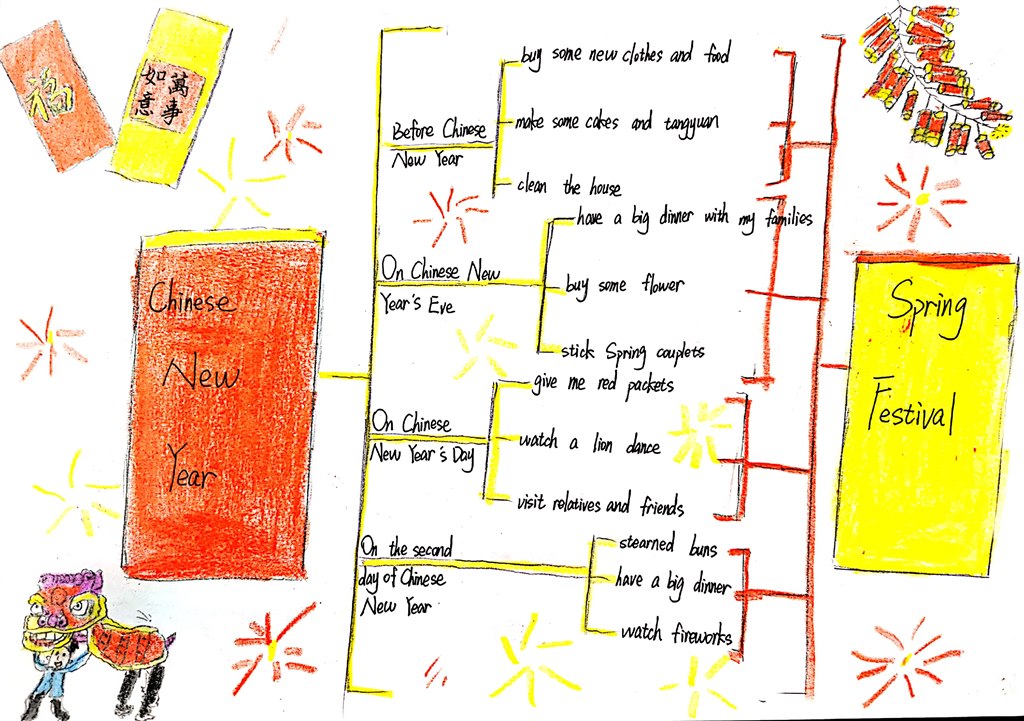 福
萬事
如意
Chinese
New
Year
Before Chinese
New Year
buy some new clothes and food
make some cakes and tangyuan
clean the house
On Chinese New
Year's Eve
have a big dinner with my families
buy some flower
stick Spring couplets
On Chinese
New Year's Day
give me red packets
watch a lion dance
visit relatives and friends
On the second
day of Chinese
New Year
stearned buns
have a big dinner
watch fireworks
Spring
Festival